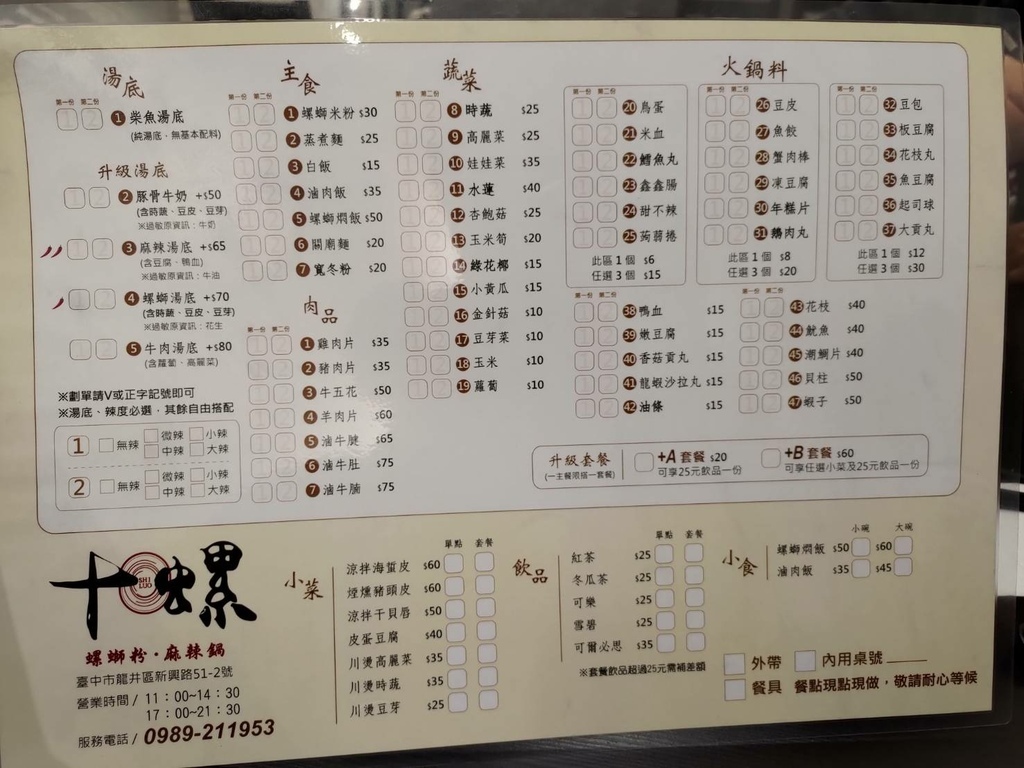 湯底
第一份 第二份
1 2 ❶ 柴魚湯底
(純湯底、無基本配料)
升級湯底
1 2 ❷ 豚骨牛奶 +$50
(含時蔬、豆皮、豆芽)
※過敏原資訊:牛奶
1 2 ❸ 麻辣湯底 +$65
(含豆腐、鴨血)
※過敏原資訊:牛油
1 2 ❹ 螺螄湯底 +$70
(含時蔬、豆皮、豆芽)
※過敏原資訊:花生
1 2 ❺ 牛肉湯底 +$80
(含蘿蔔、高麗菜)
※劃單請V或正字記號即可
※湯底、辣度必選,其餘自由搭配
1 無辣 微辣 小辣
中辣 大辣
2 無辣 微辣 小辣
中辣 大辣
主食
第一份 第二份
1 2 ❶ 螺螄米粉 $30
1 2 ❷ 蒸煮麵 $25
1 2 ❸ 白飯 $15
1 2 ❹ 滷肉飯 $35
1 2 ❺ 螺螄燜飯 $50
1 2 ❻ 關廟麵 $20
1 2 ❼ 寬冬粉 $20
肉品
第一份 第二份
1 2 ❶ 雞肉片 $35
1 2 ❷ 豬肉片 $35
1 2 ❸ 牛五花 $50
1 2 ❹ 羊肉片 $60
1 2 ❺ 滷牛腱 $65
1 2 ❻ 滷牛肚 $75
1 2 ❼ 滷牛腩 $75
蔬菜
第一份 第二份
1 2 ❽ 時蔬 $25
1 2 ❾ 高麗菜 $25
1 2 ❿ 娃娃菜 $35
1 2 ⓫ 水蓮 $40
1 2 ⓬ 杏鮑菇 $25
1 2 ⓭ 玉米筍 $20
1 2 ⓮ 綠花椰 $15
1 2 ⓯ 小黃瓜 $15
1 2 ⓰ 金針菇 $10
1 2 ⓱ 豆芽菜 $10
1 2 ⓲ 玉米 $10
1 2 ⓳ 蘿蔔 $10
火鍋料
第一份 第二份
1 2 20 鳥蛋
1 2 21 米血
1 2 22 鱈魚丸
1 2 23 鑫鑫腸
1 2 24 甜不辣
1 2 25 蒟蒻捲
此區 1 個 $6
任選 3 個 $15
第一份 第二份
1 2 26 豆皮
1 2 27 魚餃
1 2 28 蟹肉棒
1 2 29 凍豆腐
1 2 30 年糕片
1 2 31 鵝肉丸
此區 1 個 $8
任選 3 個 $20
第一份 第二份
1 2 32 豆包
1 2 33 板豆腐
1 2 34 花枝丸
1 2 35 魚豆腐
1 2 36 起司球
1 2 37 大貢丸
此區 1 個 $12
任選 3 個 $30
第一份 第二份
1 2 38 鴨血 $15
1 2 39 嫩豆腐 $15
1 2 40 香菇貢丸 $15
1 2 41 龍蝦沙拉丸 $15
1 2 42 油條 $15
第一份 第二份
1 2 43 花枝 $40
1 2 44 魷魚 $40
1 2 45 潮鯛片 $40
1 2 46 貝柱 $50
1 2 47 蝦子 $50
升級套餐
(一主餐限搭一套餐)
+A 套餐 $20
可享25元飲品一份
+B 套餐 $60
可享任選小菜及25元飲品一份
十螺
SHI LUO
螺螄粉・麻辣鍋
臺中市龍井區新興路51-2號
營業時間 / 11:00~14:30
17:00~21:30
服務電話 / 0989-211953
小菜
單點 套餐
涼拌海蜇皮 $60
煙燻豬頭皮 $60
涼拌干貝唇 $50
皮蛋豆腐 $40
川燙高麗菜 $35
川燙時蔬 $35
川燙豆芽 $25
飲品
單點 套餐
紅茶 $25
冬瓜茶 $25
可樂 $25
雪碧 $25
可爾必思 $35
※套餐飲品超過25元需補差額
小食
小碗 大碗
螺螄燜飯 $50 $60
滷肉飯 $35 $45
外帶 內用桌號
餐具 餐點現點現做,敬請耐心等候